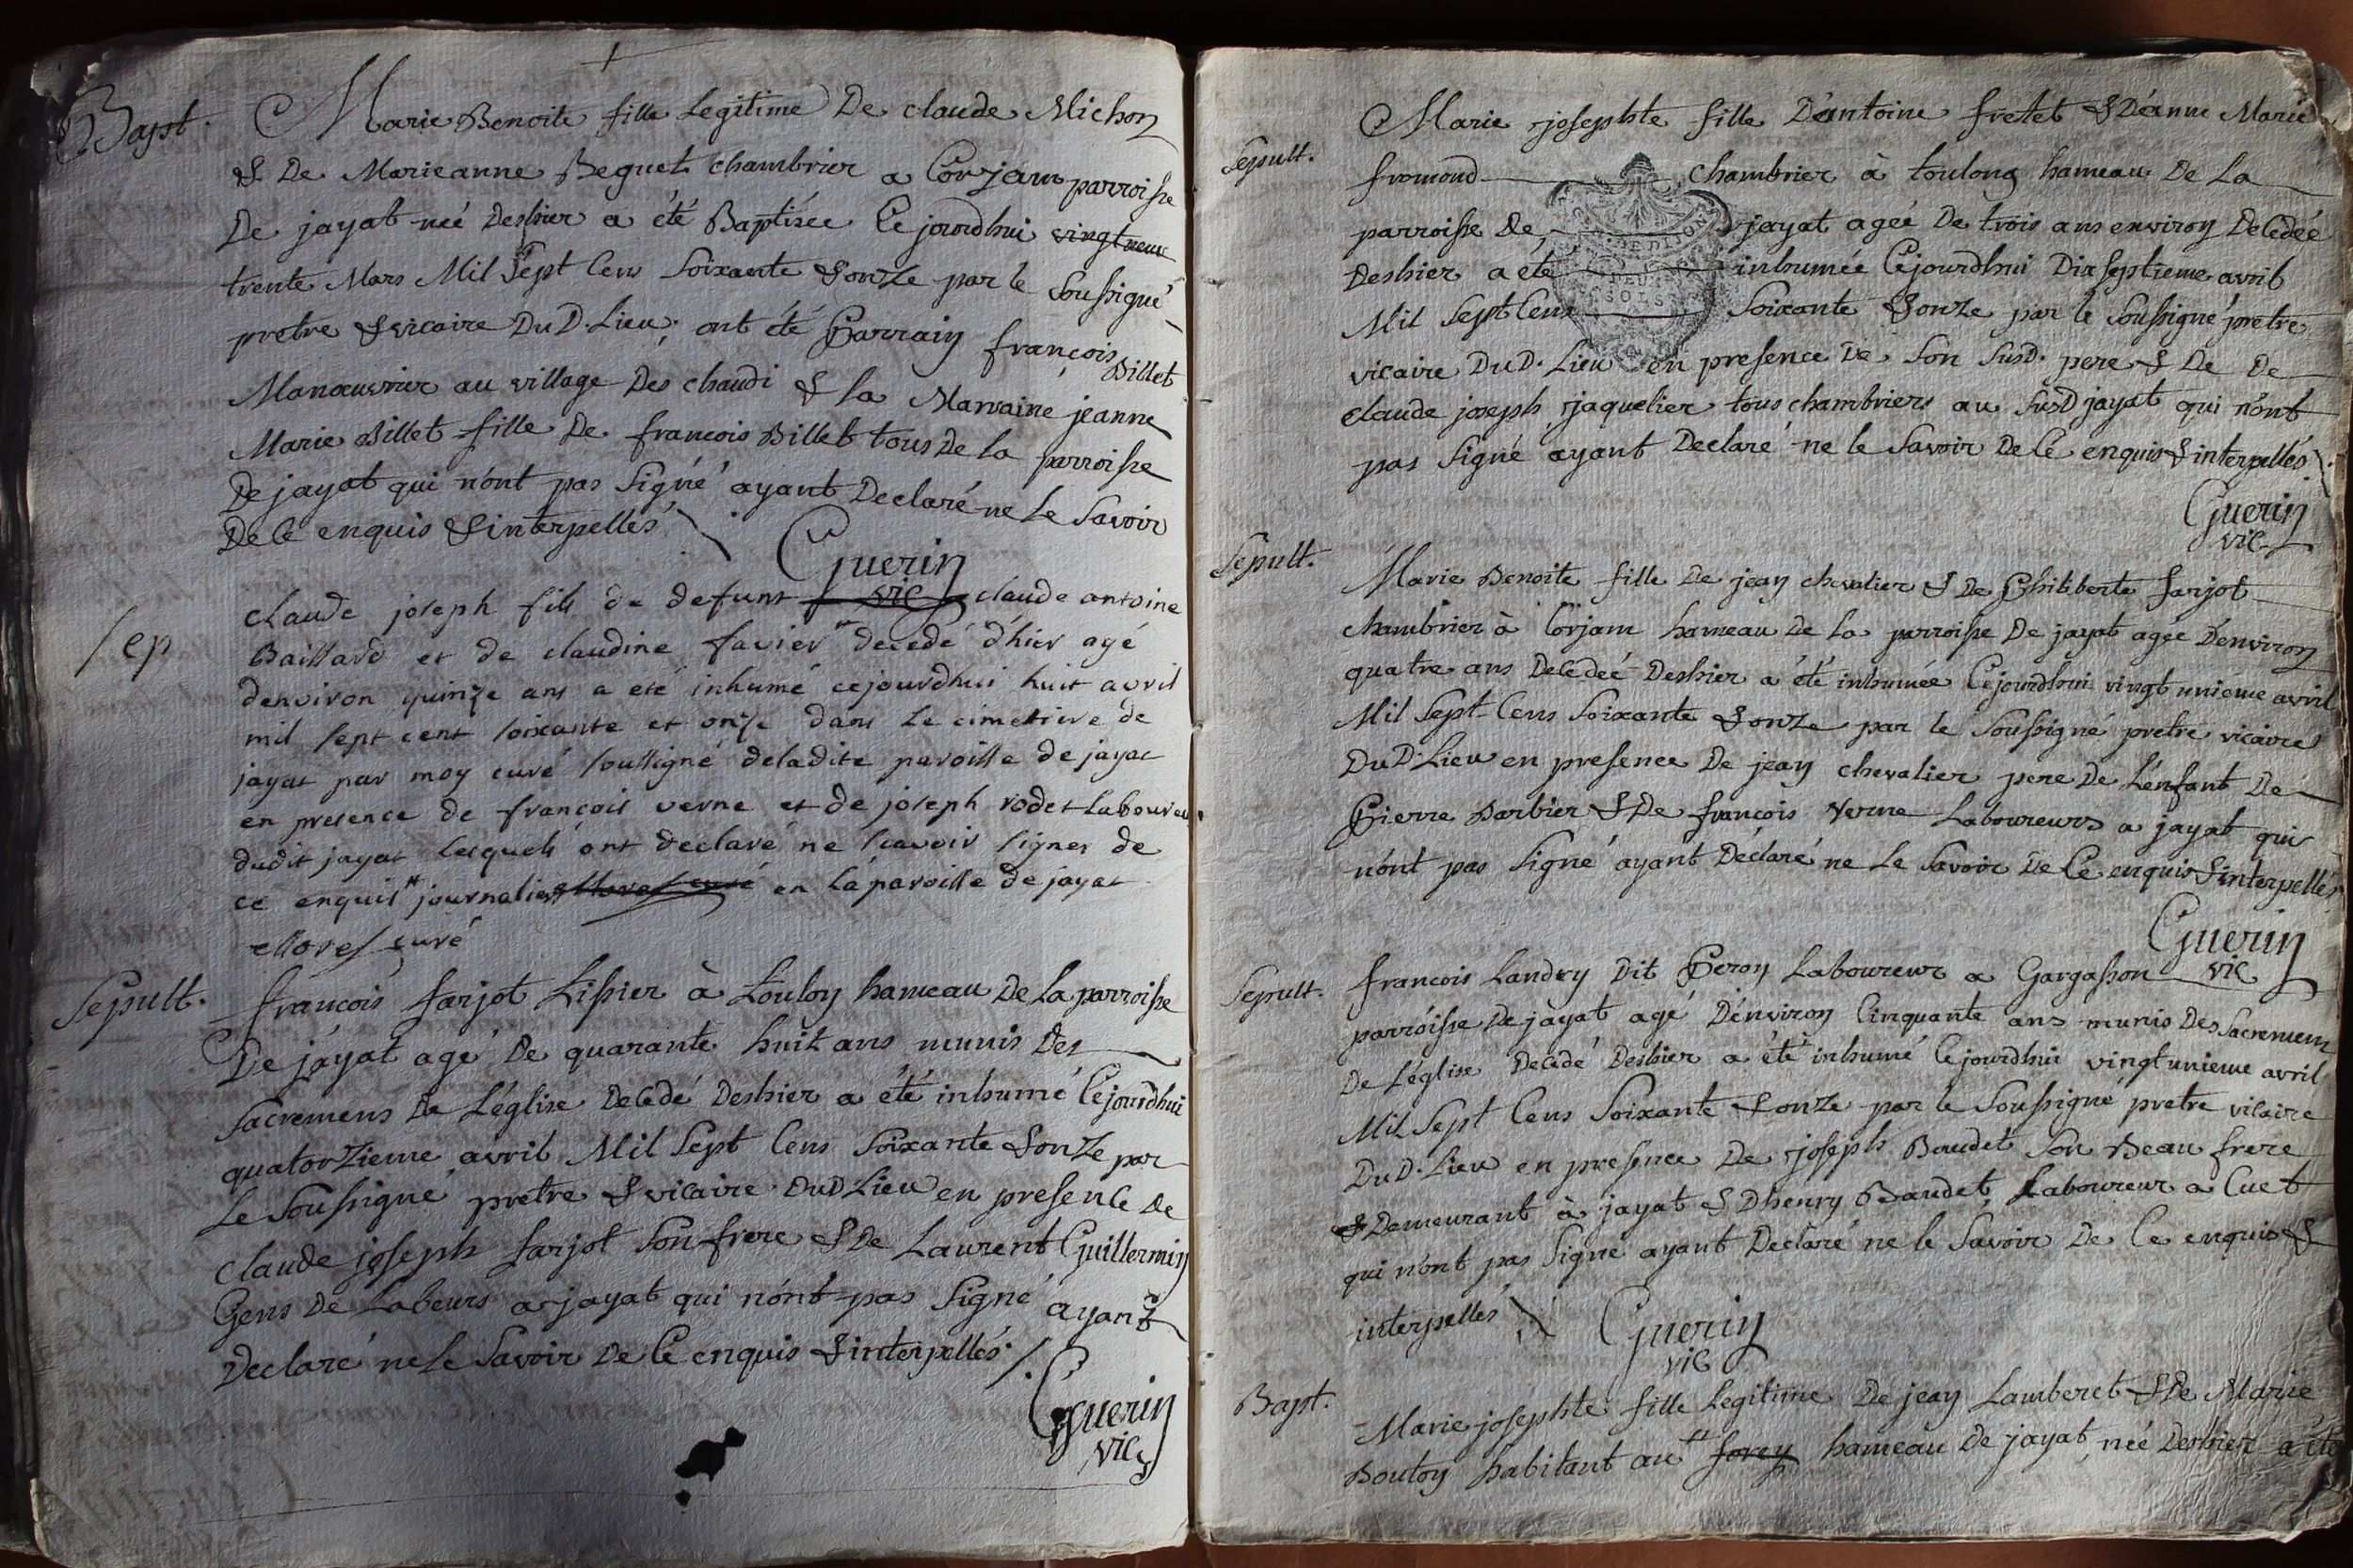 Bapt. Marie Benoite fille Legitime De claude Michon
& De Marieanne Beguet chambrier a Corjam parroisse
De jayat neé Deshier a été Baptisée Cejourdhui vingtneuf
trente Mars Mil Sept Cens Soixante & onze par le Soussigné
pretre & vicaire Du D. Lieu, ont été Parrain françois Billet
Manoeuvrier au village Des chaudi & la Marraine jeanne
Marie Billet fille De francois Billet tous De la parroisse
De jayat qui n'ont pas Signé ayant Declaré ne Le Savoir
De Ce enquis & interpellés
Guerin
vic
Sep claude joseph fils de defunt claude antoine
Baillard et de claudine favier * decedé d'hier agé
denviron quinze ans a eté inhumé cejourdhui huit avril
mil sept cent soixante et onze dans le cimetiere de
jayat par moy curé soussigné deladite paroisse de jayat
en presence de françois verne et de joseph rodet Laboureu
dudit jayat lesquels ont declaré ne scavoir signer de
ce enquis * journalier en la paroisse de jayat
curé
Sepult. françois farjot Lissier à Loulon hameau De La parroisse
De jayat agé De quarante huit ans munis Des
Sacremens De L'église Decedé Deshier a été inhumé Cejourdhui
quatorzieme avril Mil Sept Cens Soixante & onze par
Le Soussigné pretre & vicaire Du D Lieu en presence De
claude joseph farjot Son frere & De Laurent Guillermin
Gens De Labeurs a jayat qui n'ont pas Signé ayant
Declaré ne Le Savoir De Ce enquis & interpellés
Guerin
vic
Sepult. Marie josephte fille D'antoine fretet & D'anne Marie
fromond chambrier à toulong hameau De La
parroisse De jayat ageé De trois ans environ Decedeé
Deshier a été inhumée Cejourdhui Dix Septieme avril
Mil Sept Cens Soixante & onze par le Soussigné pretre
vicaire Du D. Lieu en presence De Son Sus D. pere & De De
claude joseph jaquelier tous chambriers au Sus D jayat qui n'ont
pas Signé ayant Declaré ne le Savoir De Ce enquis & interpellés
Guerin
vic
Sepult. Marie Benoite fille De jean chevalier & De Philiberte farjot
chambrier à Corjam hameau De La parroisse De jayat agée D'environ
quatre ans Decedeé Deshier a été inhumée Cejourdhui vingt unieme avril
Mil Sept Cens Soixante & onze par le Soussigné pretre vicaire
Du D. Lieu en presence De jean chevalier pere De L'enfant De
Pierre Barbier & De françois Verne Laboureurs a jayat qui
n'ont pas Signé ayant Declaré ne Le Savoir De Ce enquis & interpellés
Guerin
vic
Sepult. francois Landry Dit Peron Laboureur a Gargasson
parroisse De jayat agé D'environ Cinquante ans munis Des Sacremens
De L'église Decedé Deshier a été inhumé Cejourdhui vingt unieme avril
Mil Sept Cens Soixante & onze par le Soussigné pretre vicaire
Du D. Lieu en presence De joseph Baudet Son Beau frere
& Demeurant à jayat & D'henry Baudet Laboureur a Cuet
qui n'ont pas Signé ayant Declaré ne le Savoir De Ce enquis &
interpellés
Guerin
vic
Bapt. Marie josephte fille Legitime De jean Lamberet & De Marie
Bouton habitant au forey hameau De jayat neé Deshier a été